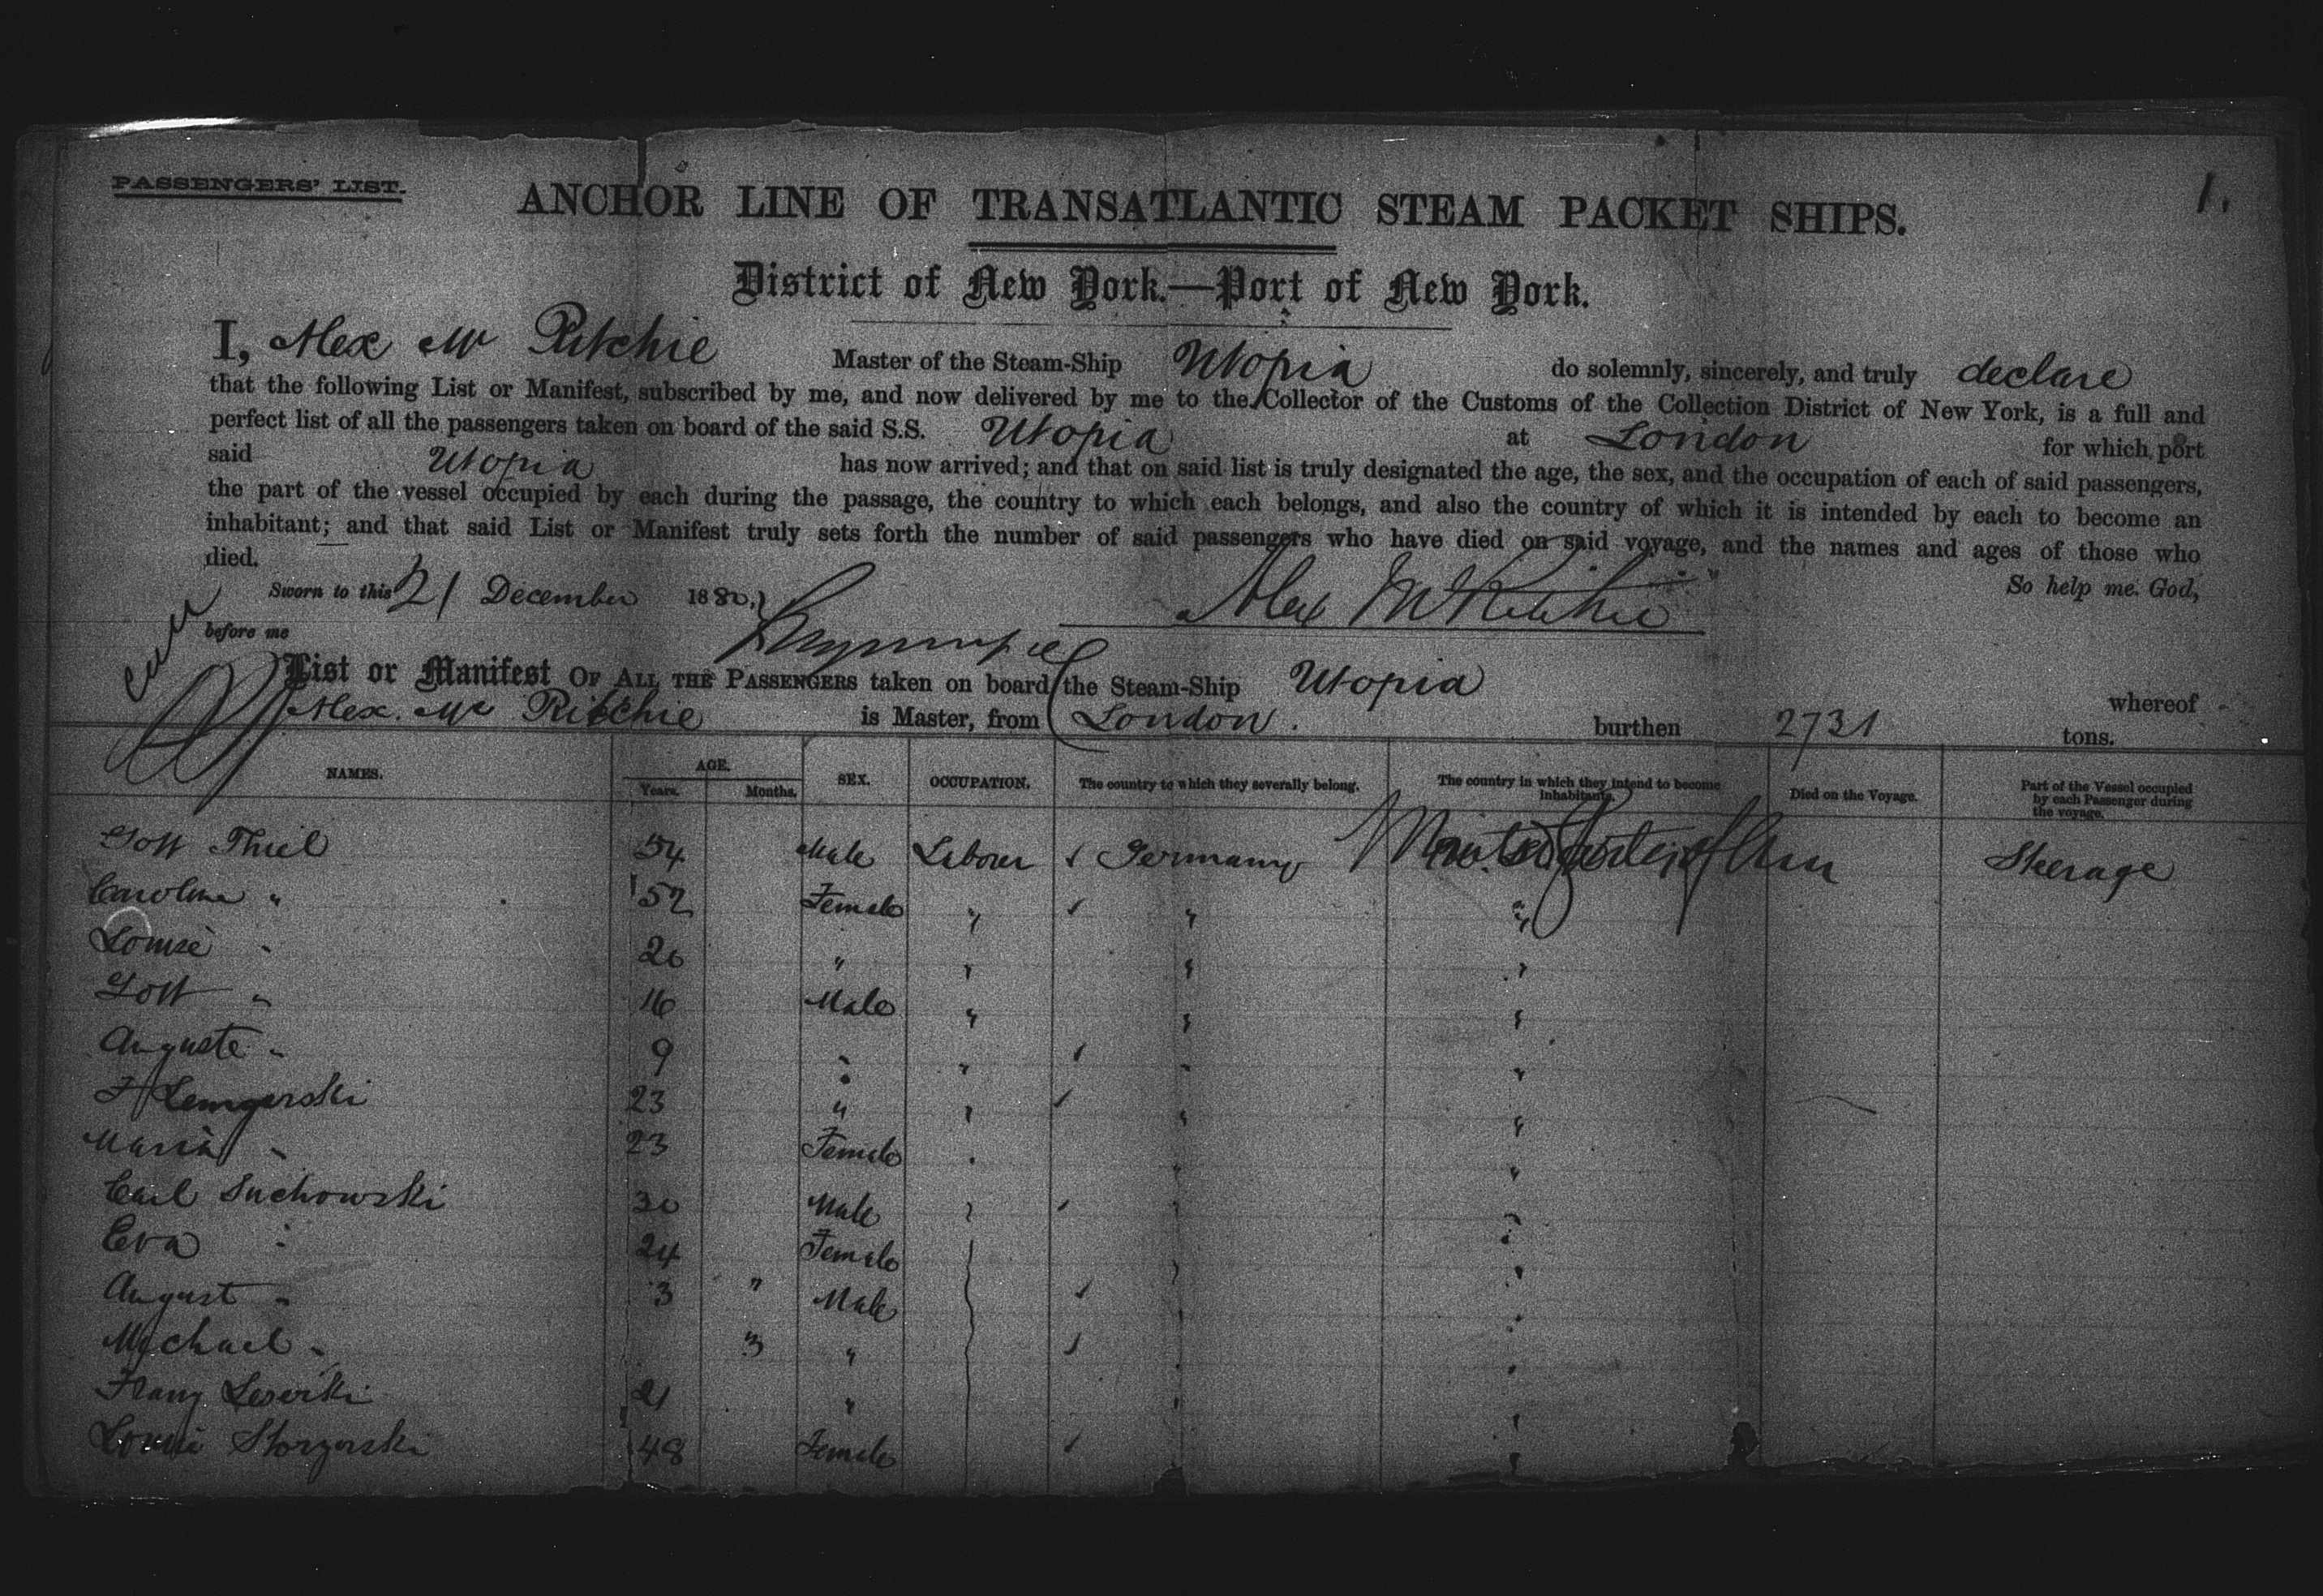 PASSENGERS' LIST.
1.
ANCHOR LINE OF TRANSATLANTIC STEAM PACKET SHIPS.
District of New York.—Port of New York.
I, Alex Mc Ritchie Master of the Steam-Ship Utopia do solemnly, sincerely, and truly declare
that the following List or Manifest, subscribed by me, and now delivered by me to the Collector of the Customs of the Collection District of New York, is a full and
perfect list of all the passengers taken on board of the said S.S. Utopia at London for which port
said Utopia has now arrived; and that on said list is truly designated the age, the sex, and the occupation of each of said passengers,
the part of the vessel occupied by each during the passage, the country to which each belongs, and also the country of which it is intended by each to become an
inhabitant; and that said List or Manifest truly sets forth the number of said passengers who have died on said voyage, and the names and ages of those who
died.
So help me God,
Sworn to this 21 December 1880, Alex McRitchie
before me
List or Manifest OF ALL THE PASSENGERS taken on board the Steam-Ship Utopia whereof
Alex. Mc Ritchie is Master, from London. burthen 2731 tons.
NAMES. AGE. Years. Months. SEX. OCCUPATION. The country to which they severally belong. The country in which they intend to become inhabitants. Died on the Voyage. Part of the Vessel occupied by each Passenger during the voyage.
Gott Thiel 54 Male Laborer Germany Steerage
Caroline " 52 Female " " "
Louise " 20 " " " "
Gott " 16 Male " " "
Auguste " 9 " " " "
23 " " " "
Maria " 23 Female " " "
Carl Suchowski 30 Male " " "
Eva " 24 Female " "
August " 3 " Male " "
Michael " 3 " " "
21 " " "
48 Female "